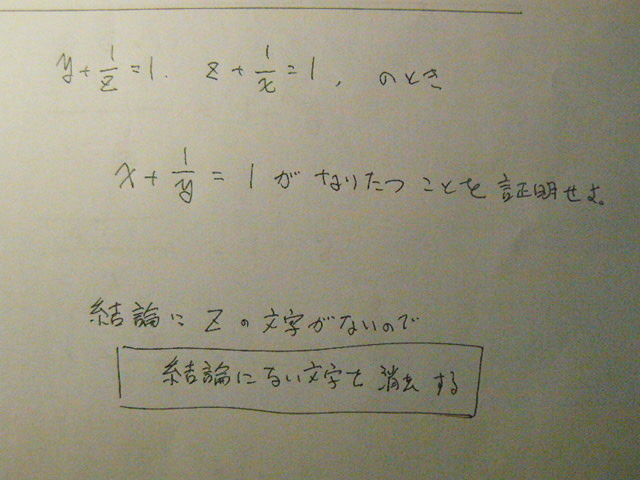 y+1/z=1. z+1/x=1, のとき
x+1/y=1がなりたつことを証明せよ。
結論にzの文字がないので
結論にない文字を消去する